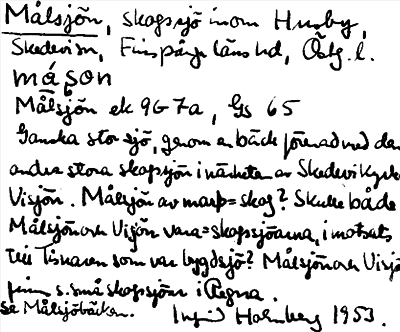 Målsjön, skogssjö inom Husby,
Skedevi sn, Finspånga läns hd, Östg. l.
måson
Målsjön ek 9G7a, Gs 65
Ganska stor sjö, genom en bäck förenad med den
andra stora skogssjön i närheten av Skedevi kyrka
Visjön. Målsjön av = skog? Skulle både
Målsjön och Visjön vara = skogssjöarna, i motsats
till Tisnaren som var bygdsjö? Målsjön och Visjön
finns s. små skogssjöar i Regna.
Se Målsjöbäcken. Ingrid Holmberg 1953.